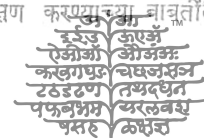 करण्याच्या
TM
अ आ
इईउ ऊएॲ
ऐओऑ औअंअः
कखगघङ चछजझञ
टठडढण तथदधन
पफबभम यरलवश
षसह ळक्षज्ञ